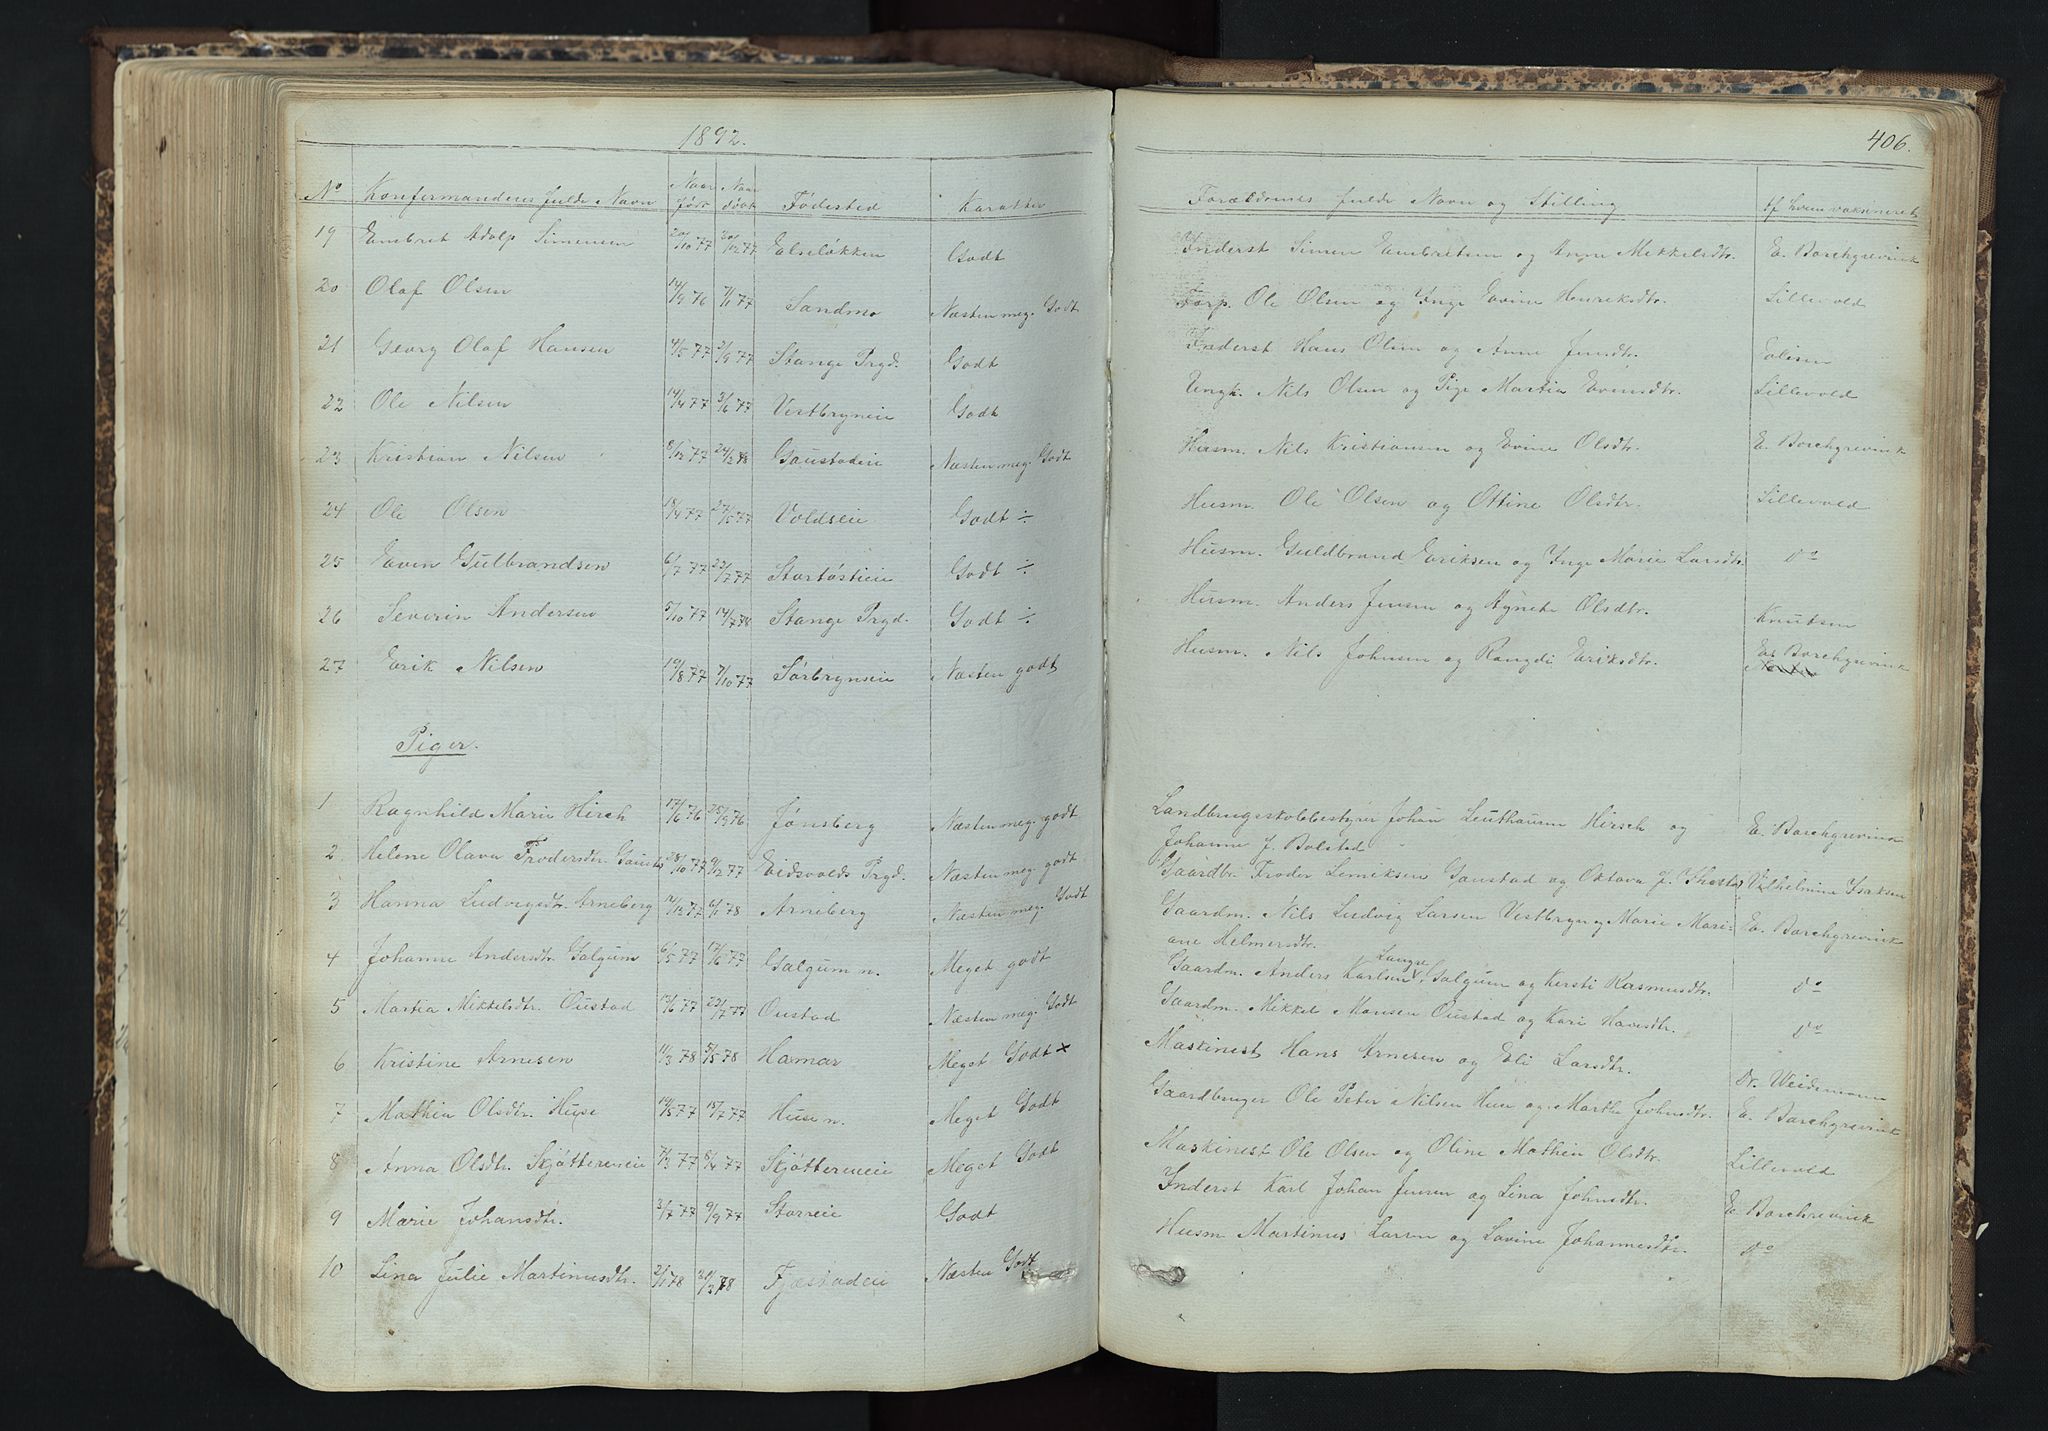 1892.
406.
No Konfirmandens fulde Navn Naar født Naar døbt Fødested Karakter Forældrenes fulde Navn og Stilling Af hvem vaksineret
19 Embret Adolp Simensen 20/10 77 30/12 77 Elseløkken Godt Inderst Simen Embretsen og Anne Mikkelsdtr. E. Borchgrevink
20 Olaf Olsen 14/9 76 7/1 77 Sandmo Næsten meg. Godt Torp. Ole Olsen og Inge Evine Henriksdtr. Lillevold
21 Georg Olaf Hansen 4/5 77 2/9 77 Stange Prgd. Godt Inderst Hans Olsen og Anne Jensdtr. Eolisen
22 Ole Nilsen 14/4 77 3/6 77 Vestbryneie Godt Ungk. Nils Olsen og Pige Martia Evensdtr. Lillevold
23 Kristian Nilsen 8/12 77 24/2 78 Gaustadeie Næsten meg. Godt Husm. Nils Kristiansen og Evine Olsdtr. E. Borchgrevink
24 Ole Olsen 18/4 77 27/5 77 Voldseie Godt ÷ Husm. Ole Olsen og Ottine Olsdtr. Lillevold
25 Even Gulbrandsen 6/7 77 22/7 77 Stortøstieie Godt ÷ Husm. Guldbrand Eriksen og Inge Marie Larsdtr. Do
26 Severin Andersen 5/10 77 14/7 78 Stange Prgd. Godt ÷ Husm. Anders Jensen og Agnete Olsdtr. Knutsen
27 Erik Nilsen 19/8 77 7/10 77 Sørbryneie Næsten godt Husm. Nils Johnsen og Rangdi Eriksdtr. E. Borchgrevink
Piger.
1 Ragnhild Marie Hirsch 17/6 76 25/9 76 Jønsberg Næsten meg. godt Landbrugsskolebestyrer Johan Leuthausen Hirsch og E. Borchgrevink
Johanne J. Bolstad
2 Helene Olava Frodersdtr. Gaustad 28/10 77 9/12 77 Eidsvolds Prgd. Næsten meg. godt Gaardbr. Froder Lemeksen Gaustad og Oktava J. Thostad Vilhelmine Isaksen
3 Hanna Ludvigsdtr. Arneberg 12/12 77 6/1 78 Arneberg Næsten meg. Godt Gaardm. Nils Ludvig Larsen Vestbryn og Marie Mari- E. Borchgrevink
ane Helmersdtr.
4 Johanne Andersdtr. Galgum 6/5 77 17/6 77 Galgum n. Meget godt Gaardm. Anders Karlsen Langre Galgum og Kersti Rasmusdtr. Do
5 Martia Mikkelsdtr. Oustad 13/6 77 22/7 77 Oustad Næsten meg. Godt Gaardm. Mikkel Monsen Oustad og Kari Hansdtr. Do
6 Kristine Arnesen 11/3 78 5/5 78 Hamar Meget Godt × Maskinest Hans Arnesen og Eli Larsdtr. Dr. Weidemann
7 Mathea Olsdtr. Huse 14/5 77 15/7 77 Huse n. Meget Godt Gaardbruger Ole Peter Nilsen Huse og Marthe Johnsdtr. E. Borchgrevink
8 Anna Olsdtr. Skjøttereneie 7/3 77 8/4 77 Skjøttereneie Meget Godt Maskinest Ole Olsen og Oline Mathea Olsdtr. Lillevold
9 Marie Johansdtr. 3/7 77 9/9 77 Storreie Godt Inderst Karl Johan Jensen og Lina Johnsdtr. E. Borchrevink
10 Lina Julie Martinusdtr. 2/1 78 31/3 78 Fjæstadeie Næsten Godt Husm. Martinus Larsen og Lovine Johannesdtr. Do